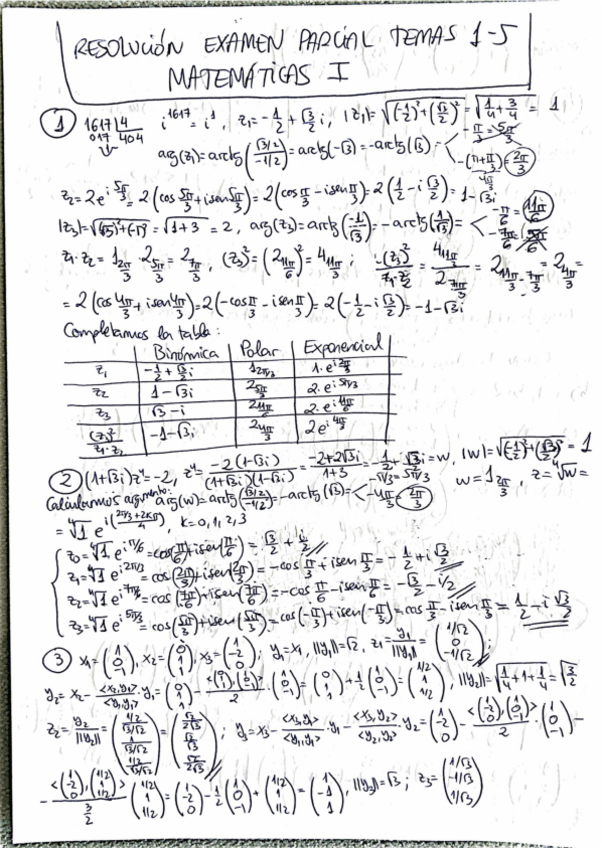 RESOLUCIÓN EXAMEN PARCIAL TEMAS 1-5
MATEMÁTICAS I
① 1617 | 4 i^1617 = i^1, z₁ = -1/2 + √3/2 i, |z₁| = √((-1/2)² + (√3/2)²) = √(1/4 + 3/4) = 1
017 404
arg(z₁) = arctg((√3/2)/(-1/2)) = arctg(-√3) = -arctg(√3) = < -π/3 = 5π/3
-(π+π/3) = 2π/3
z₂ = 2e^(i 5π/3) = 2(cos 5π/3 + i sen 5π/3) = 2(cos π/3 - i sen π/3) = 2(1/2 - i √3/2) = 1 - √3i
|z₃| = √((√3)² + (-1)²) = √(3 + 1) = 2, arg(z₃) = arctg(-1/√3) = -arctg(1/√3) = < -π/6 = 11π/6
-7π/6 = 5π/6
z₁·z₂ = 1_(2π/3) · 2_(5π/3) = 2_(7π/3), (z₃)² = (2_(11π/6))² = 4_(11π/3); (z₃)²/(z₁·z₂) = 4_(11π/3)/2_(7π/3) = 2_(11π/3 - 7π/3) = 2_(4π/3) =
= 2(cos 4π/3 + i sen 4π/3) = 2(-cos π/3 - i sen π/3) = 2(-1/2 - i √3/2) = -1 - √3i
Completamos la tabla:
Binómica Polar Exponencial
z₁ -1/2 + √3/2 i 1_(2π/3) 1·e^(i 2π/3)
z₂ 1 - √3i 2_(5π/3) 2·e^(i 5π/3)
z₃ √3 - i 2_(11π/6) 2·e^(i 11π/6)
(z₃)²/(z₁·z₂) -1 - √3i 2_(4π/3) 2e^(i 4π/3)
② (1+√3i)z⁴ = -2, z⁴ = -2(1-√3i)/((1+√3i)(1-√3i)) = (-2+2√3i)/(1+3) = -1/2 + √3/2 i = w, |w| = √((-1/2)² + (√3/2)²) = 1
Calculamos argumento: arg(w) = arctg((√3/2)/(-1/2)) = -arctg(√3) = < -π/3 = 5π/3
-4π/3 = 2π/3 w = 1_(2π/3), z = ⁴√w =
= ⁴√1 e^(i((2π/3 + 2kπ)/4)), k = 0, 1, 2, 3
z₀ = ⁴√1 e^(iπ/6) = cos(π/6) + i sen(π/6) = √3/2 + i/2
z₁ = ⁴√1 e^(i2π/3) = cos(2π/3) + i sen(2π/3) = -cos π/3 + i sen π/3 = -1/2 + i √3/2
z₂ = ⁴√1 e^(i7π/6) = cos(7π/6) + i sen(7π/6) = -cos π/6 - i sen π/6 = -√3/2 - i/2
z₃ = ⁴√1 e^(i5π/3) = cos(5π/3) + i sen(5π/3) = cos(-π/3) + i sen(-π/3) = cos π/3 - i sen π/3 = 1/2 - i √3/2
③ x₁ = (1 0 -1), x₂ = (0 1 1), x₃ = (1 -2 0); y₁ = x₁, ||y₁|| = √2, z₁ = y₁/||y₁|| = (1/√2 0 -1/√2);
y₂ = x₂ - <x₂,y₁>/<y₁,y₁> · y₁ = (0 1 1) - <(0 1 1),(1 0 -1)>/2 · (1 0 -1) = (0 1 1) + 1/2 (1 0 -1) = (1/2 1 1/2), ||y₂|| = √(1/4 + 1 + 1/4) = √(3/2)
z₂ = y₂/||y₂|| = ; y₃ = x₃ - <x₃,y₁>/<y₁,y₁> · y₁ - <x₃,y₂>/<y₂,y₂> · y₂ = (1 -2 0) - <(1 -2 0),(1 0 -1)>/2 · (1 0 -1) -
- <(1 -2 0),(1/2 1 1/2)>/(3/2) (1/2 1 1/2) = (1 -2 0) - 1/2 (1 0 -1) + (1/2 1 1/2) = (1 -1 1), ||y₃|| = √3; z₃ = (1/√3 -1/√3 1/√3)